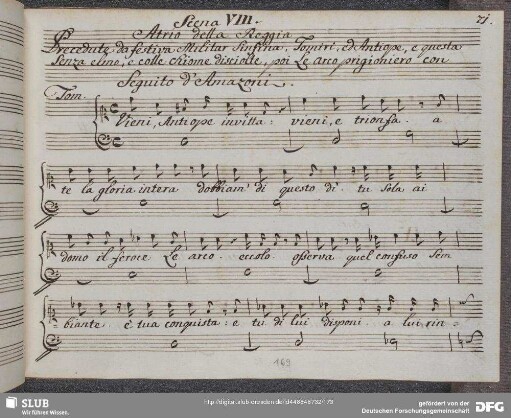 Scena VIII.
21.
Atrio della Reggia
Precedute da festiva Militar Sinfonia, Tomiri, ed Antiope, e questa
senza elmo, e colle chiome disciolte, poi Learco prigioniero con
Seguito d'Amazoni.
Tom.
Vieni, Antiope invitta: vieni, e trionfa. a
te la gloria intera dobbiam' di questo dì. tu sola ai
domo il feroce Learco. eccolo. osserva quel confuso Sem
biante. è tua conquista: e tu di lui disponi. a lui rin=
169
SLUB
Wir führen Wissen.
gefördert von der
Deutschen Forschungsgemeinschaft
DFG